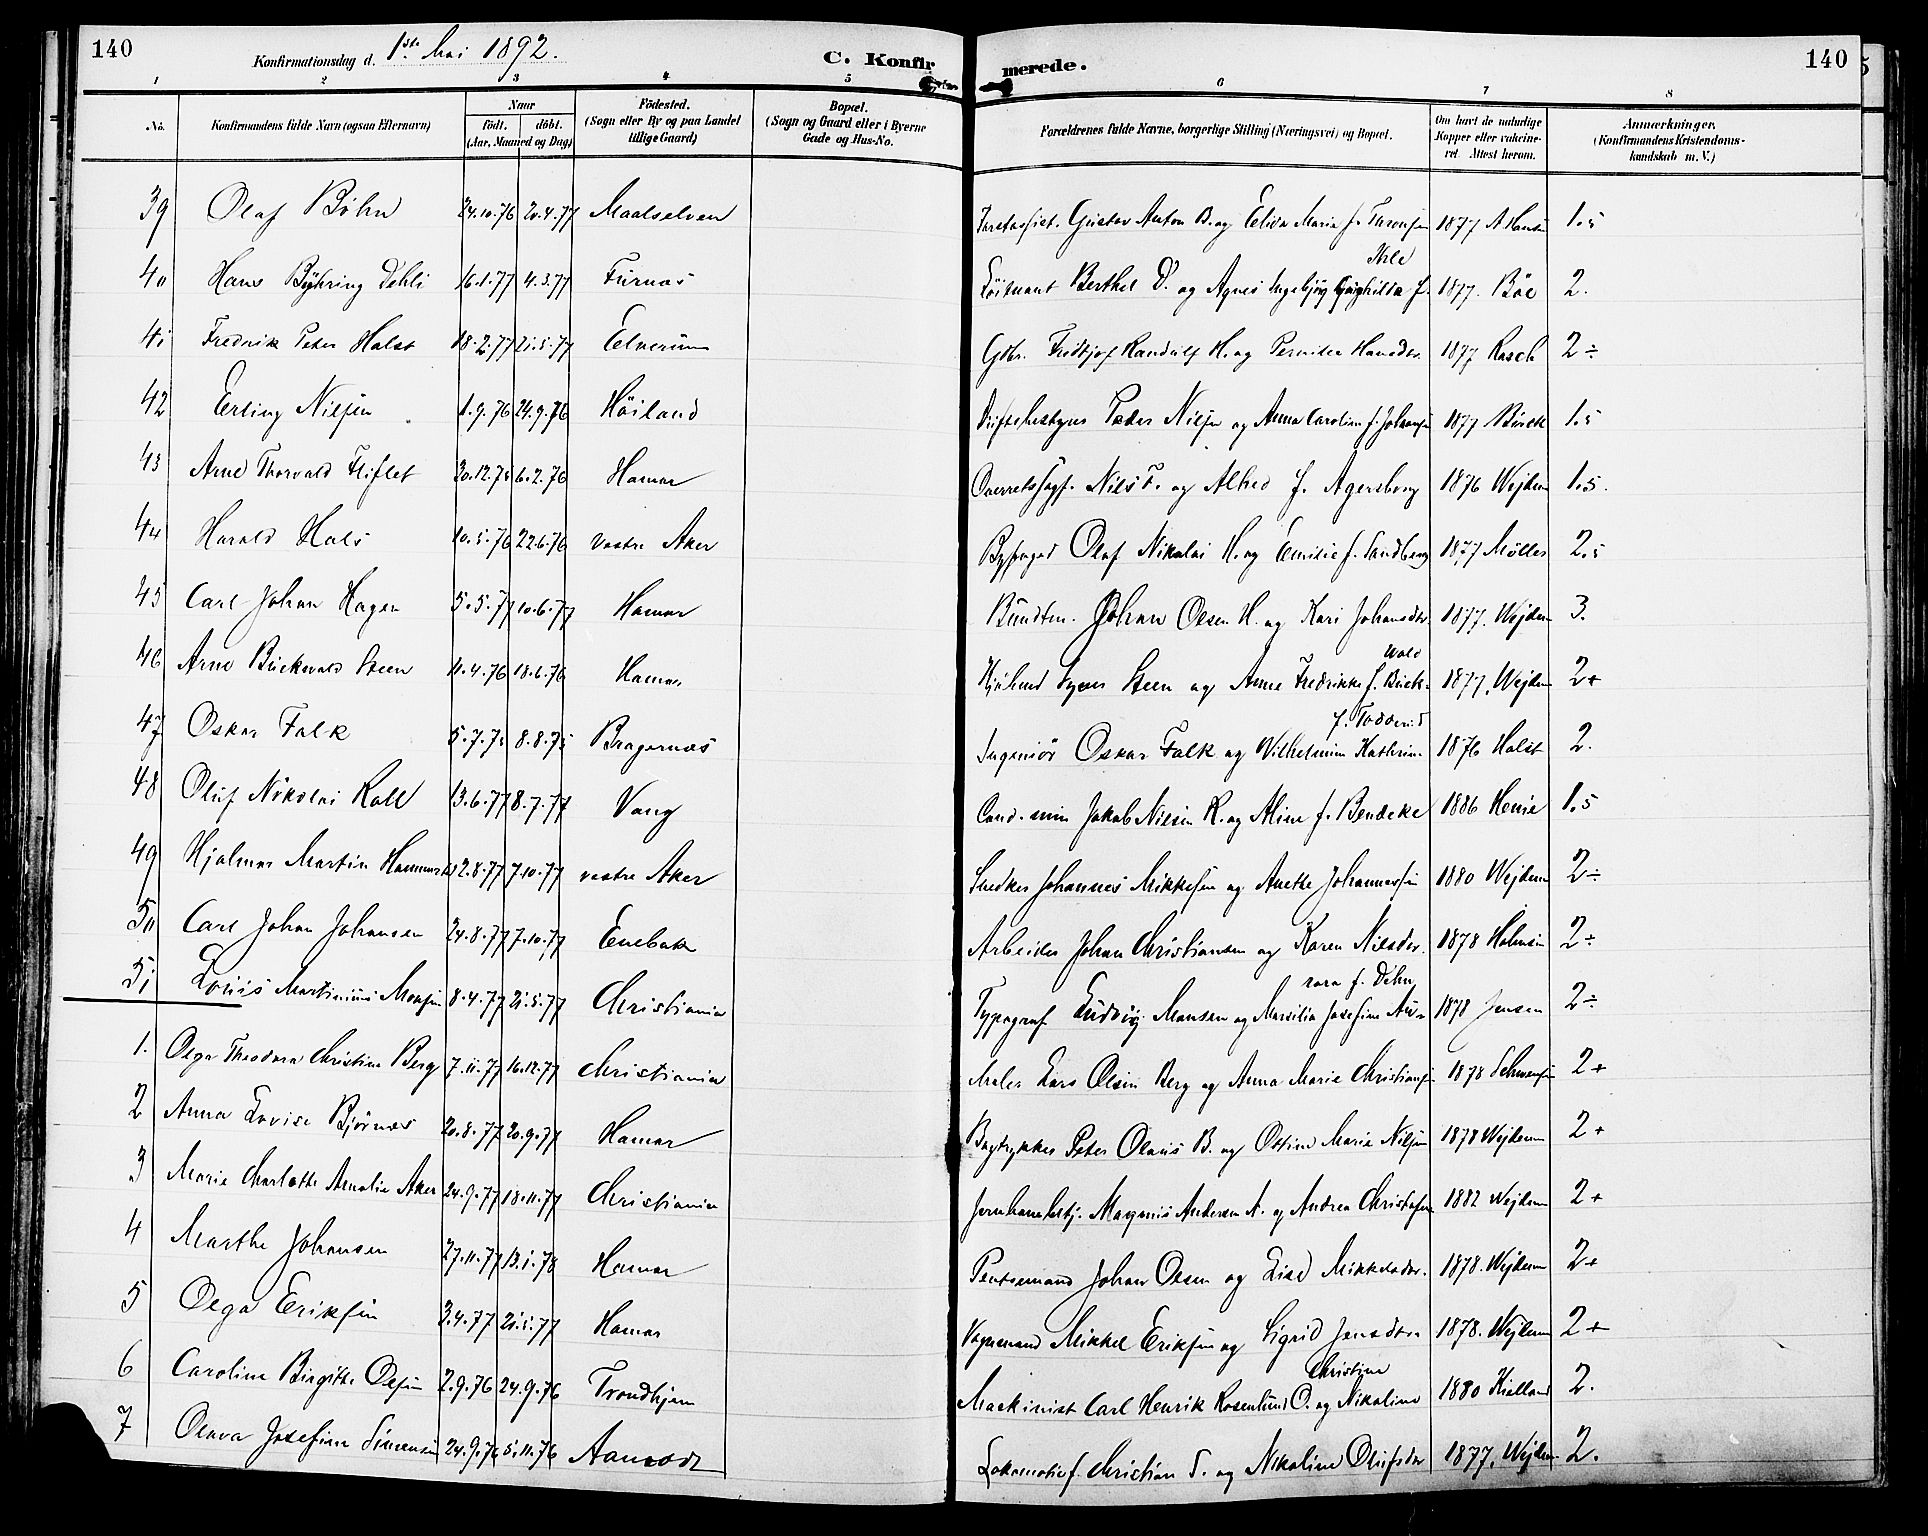 140
Konfirmationsdag d. 1ste Mai 1892.
C. Konfirmerede.
140
1 2 3 4 5 6 7 8
No.
Konfirmandens fulde Navn (ogsaa Efternavn)
Naar
födt. döbt.
(Aar, Maaned og Dag)
Födested.
(Sogn eller By og paa Landet
tillige Gaard)
Bopæl.
(Sogn og Gaard eller i Byerne
Gade og Hus-No.
Forældrenes fulde Navne, borgerlige Stilling (Næringsvei) og Bopæl.
Om havt de naturlige
Kopper eller vakcine-
ret. Attest herom.
Anmærkninger.
(Konfirmandens Kristendoms-
kundskab m. V.)
39 Olaf Böhn 24.10.76 20.4.77 Maalselven Gustav Anton B. og Maria f. 1877 A Hansen 1.5
Ihle
40 Hans Dehli 16.1.77 4.3.77 Furnæs Löitnant Berthel D. og Agnes Ingebjørg f. 1877. Böe 2.
41 Fredrik Peter Holst 18.2.77 21.5.77 Elverum Gbr. Fridtjof Randulf H. og Pernille Hansdr. 1877 Rasch 2÷
42 Erling Nilsen 1.9.76 24.9.76 Höiland Peder Nilsen og Anna Caroline f. Johansen 1877 1.5
43 Arne Thorvald Fliflet 30.12.75 6.2.76 Hamar Overretssagf. Nils F. og f. Agersborg 1876 Wejdem 1.5.
44 Harald Hals 10.5.76 22.6.76 vestre Aker Byfoged Olaf Nikolai H. og Emilie f. Sandberg 1877 Möller 2.5
45 Carl Johan Hagen 5.5.77 10.6.77 Hamar Johan Olsen H. og Kari Johansdr. 1877. Wejdem 3.
wald
46 Arne Buckwald Steen 11.4.76 18.6.76 Hamar Steen og Anne Fredrikke f. Buck- 1877. Wejdem 2+
47 Oskar Falk 5.7.75 8.8.75 Bragernæs Ingeniör Oskar Falk og Wilhelmine Kathrine 1876 Holst 2.
48 Oluf Nikolai Roll 13.6.77 8.7.77 Vang Cand. min Jakob Nilsen R. og Aline f. Bendeke 1886 1.5
49 Hjalmar Martin 12.8.77 7.10.77 vestre Aker Snedker Johannes Mikkelsen og Anethe Johannessen 1880 Wejdem 2÷
50 Carl Johan Johansen 24.8.77 7.10.77 Enebak Arbeider Johan Christiansen og Karen Nilsdr. 1878 Holmsen 2÷
rora f. Dehn
51 Louis Martinius Monsen 8.4.77 21.5.77 Christiania Typograf Ludvig Monsen og Josefine Au- 1878 Jensen 2÷
1. Olga Theodora Christine Berg 7.11.77 16.12.77 Christiania Maler Lars Olsen Berg og Anna Marie Christiansen 1878 2+
2 Anna Lovise Björnæs 20.8.77 20.9.77 Hamar Bogtrykker Peter Olaus B. og Marie Nilsen 1878 Wejdem 2+
3 Marie Charlotte Amalie Aker 24.9.77 18.11.77 Christiania Jernbanebetj. Magnus Andersen A. og Andrea Christofersen 1882 Wejdem 2+
4 Marthe Johansen 27.11.77 13.1.78 Hamar Johan Olsen og Lise Mikkelsdr. 1878. Wejdem 2+
5 Olga Eriksen 3.4.77 21.5.77 Hamar Vognmand Mikkel Eriksen og Sigrid Jensdr. 1878. Wejdem 2+
Christine
6 Caroline Birgitte Olsen 2.9.76 24.9.76 Trondhjem Maskinist Carl Henrik Rosenlund O. og Nikoline 1880 Kielland 2.
7 Olava Josefine Simensen 24.9.76 5.11.76 Aamodt Lokomotivf. Christian S. og Nikoline Olufsdr 1877. Wejdem 2.